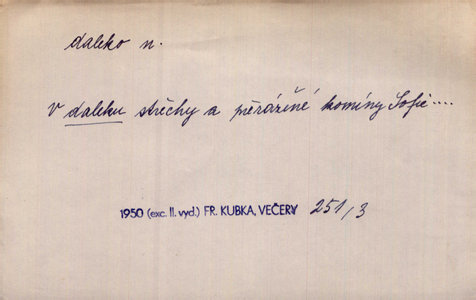 daleko n.
v daleku střechy a pěrázěné komíny Sofie....
1950 (exc. II. vyd.) FR. KUBKA, VEČERY 251/3